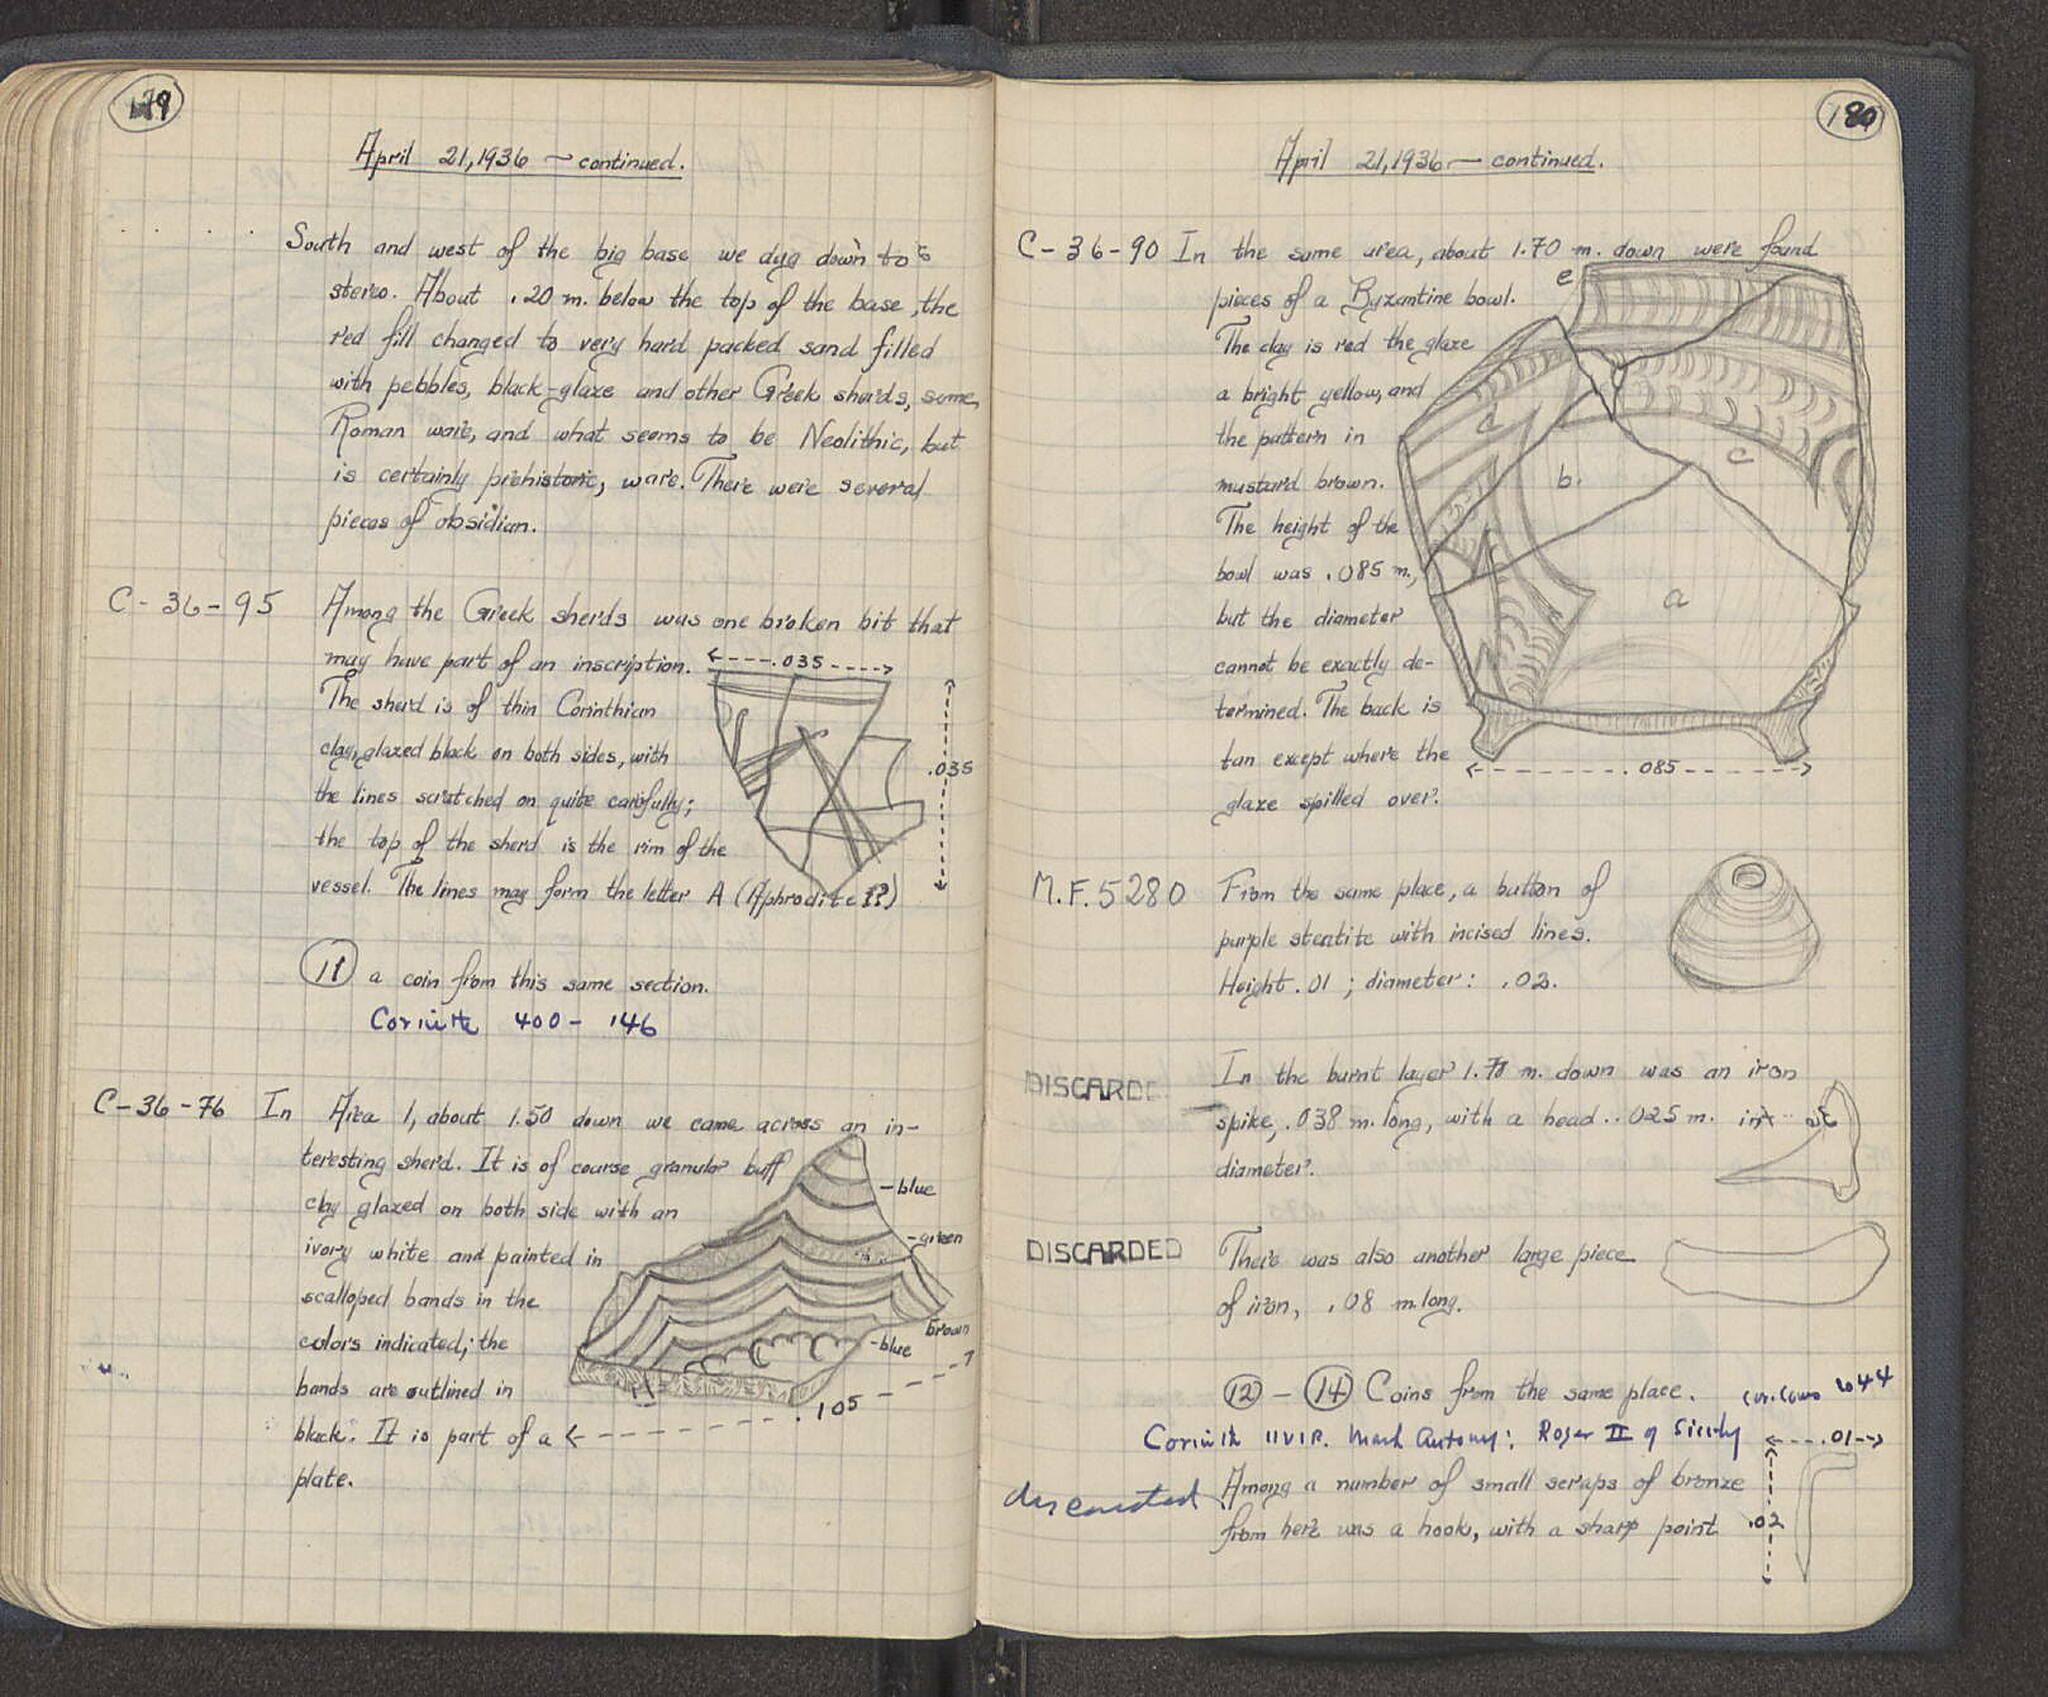 179
April 21, 1936 — continued.
South and west of the big base we dug down to
stereo. About .20 m. below the top of the base, the
red fill changed to very hard packed sand filled
with pebbles, black-glaze and other Greek sherds, some
Roman ware, and what seems to be Neolithic, but
is certainly prehistoric, ware. There were several
pieces of obsidian.
C-36-95 Among the Greek sherds was one broken bit that
may have part of an inscription. .035
The sherd is of thin Corinthian
clay, glazed black on both sides, with
.035
the lines scratched on quite carefully;
the top of the sherd is the rim of the
vessel. The lines may form the letter A (Aphrodite??)
11 a coin from this same section.
Corinth 400 - 146
C-36-76 In Area 1, about 1.50 down we came across an in-
teresting sherd. It is of coarse granular buff
-blue
clay glazed on both side with an
-green
ivory white and painted in
scalloped bands in the
brown
colors indicated; the
-blue
bands are outlined in
.105
black. It is part of a
plate.
180
April 21, 1936 — continued.
C-36-90 In the same area, about 1.70 m. down were found
e
pieces of a Byzantine bowl.
The clay is red the glaze
a bright yellow, and
d
the pattern in
c
mustard brown.
b.
The height of the
bowl was .085 m.,
a
but the diameter
cannot be exactly de-
termined. The back is
tan except where the
.085
glaze spilled over.
M.F. 5280 From the same place, a button of
purple steatite with incised lines.
Height .01 ; diameter: .02.
DISCARDE In the burnt layer 1.70 m. down was an iron
spike, .038 m. long, with a head .025 m. in
diameter.
DISCARDED There was also another large piece
of iron, .08 m. long.
12 - 14 Coins from the same place.
Corinth IIVIR. Mark Antony: Roger II of Sicily
.01
discarded Among a number of small scraps of bronze
from here was a hook, with a sharp point
.02